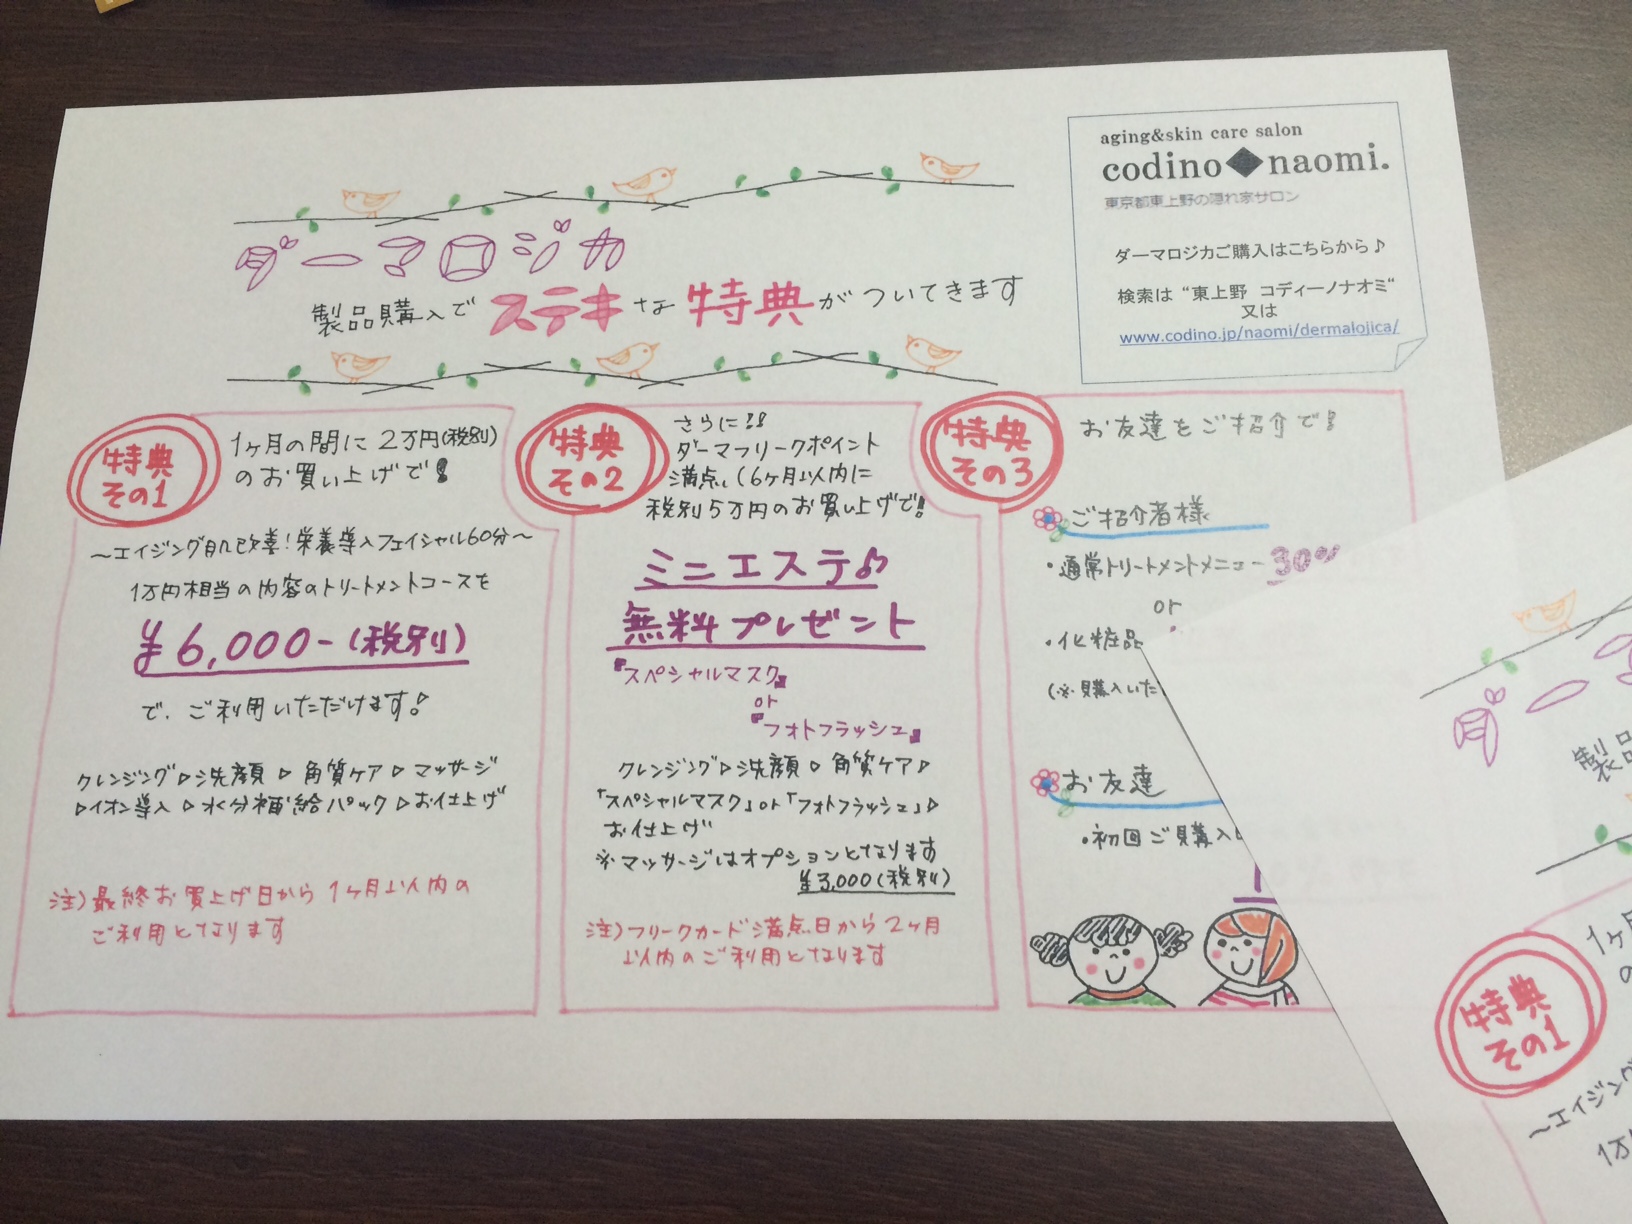 aging&skin care salon
codino◆naomi.
東京都東上野の隠れ家サロン
ダーマロジカご購入はこちらから♪
検索は “東上野　コディーノナオミ“
又は
www.codino.jp/naomi/dermalojica/
ダーマロジカ
製品購入でステキな特典がついてきます
特典
その1
1ヶ月の間に2万円(税別)
のお買い上げで!
〜エイジング肌改善!栄養導入フェイシャル60分〜
1万円相当の内容のトリートメントコースを
¥6,000-(税別)
で、ご利用いただけます!
クレンジング▷洗顔▷角質ケア▷マッサージ
▷イオン導入▷水分補給パック▷お仕上げ
注)最終お買上げ日から1ヶ月以内の
ご利用となります
特典
その2
さらに!!
ダーマフリークポイント
満点(6ヶ月以内に
税別5万円のお買い上げで!
ミニエステ♪
無料プレゼント
『スペシャルマスク』
or
『フォトフラッシュ』
クレンジング▷洗顔▷角質ケア▷
「スペシャルマスク」or「フォトフラッシュ」▷
お仕上げ
※マッサージはオプションとなります
¥3,000(税別)
注)フリークカード満点日から2ヶ月
以内のご利用となります
特典
その3
お友達をご紹介で!
ご紹介者様
・通常トリートメントメニュー30%
or
・化粧品
(※購入いた
お友達
・初回ご購入
ダーマ
製品
特典
その1
1ヶ月
の
〜エイジング
1万円